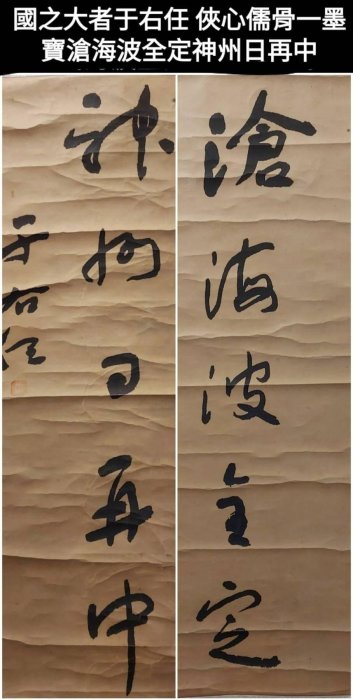 國之大者于右任 俠心儒骨一墨
寶滄海波全定神州日再中
滄海波全定
神州日再中
于右任